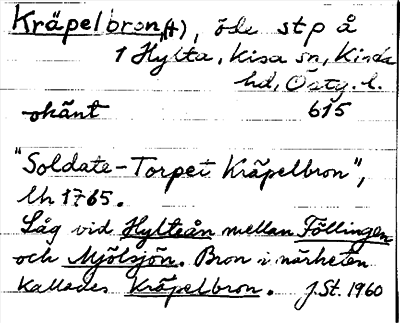 Kräpelbron,(t), öde stp å
1 Hylta, Kisa sn, Kinda
hd, Östg. l.
okänt 615
"Soldate-Torpet Kräpelbron",
lh 1765.
Låg vid Hylteån mellan Föllingen
och Mjölsjön. Bron i närheten
kallades Kräpelbron. J.St. 1960